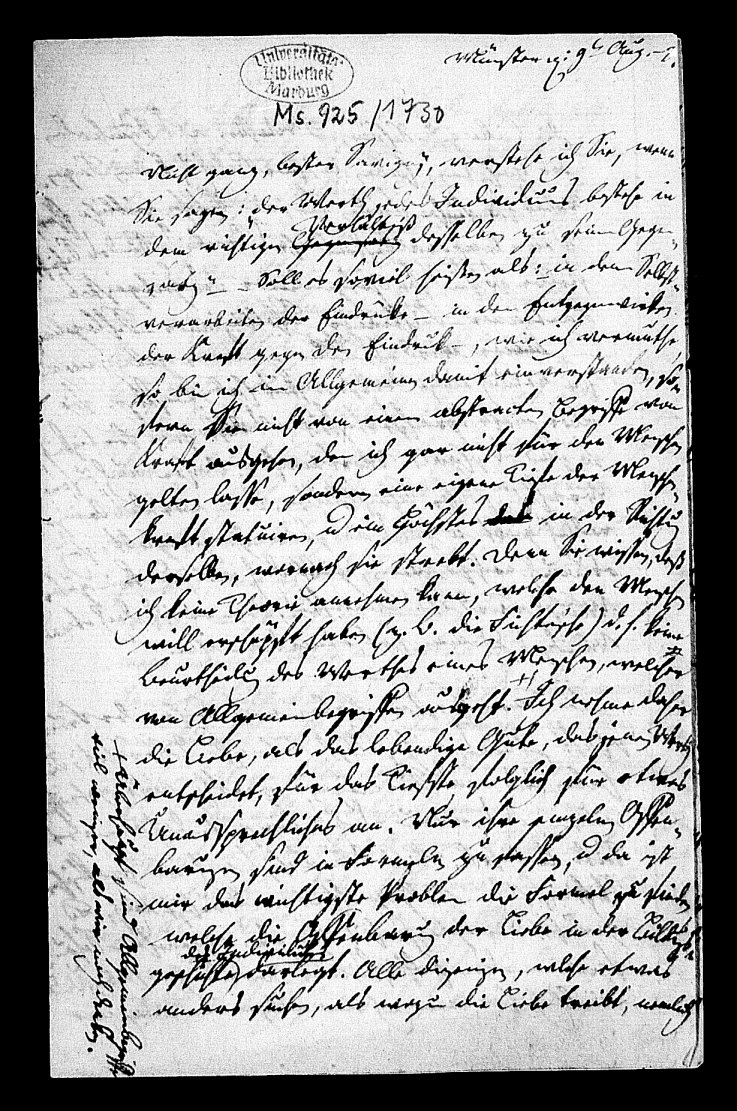 Universitäts
Bibliothek
Marburg
Münster 9t Aug.
Ms. 925/1730
Nicht ganz, bester Savigny, verstehe ich Sie, wenn
Sie sagen: der Werth jedes Individuums bestehe in
Verhältniß
dem richtigen Gegensatz desselben zu seiner Gegen-
wart — Soll es soviel heißen als: in dem Selbst
verarbeiten der Eindrücke — in dem Entgegenwirken
der Kraft gegen den Eindruck —, wie ich vermuthe
so bin ich im Allgemeinen damit einverstanden, so-
fern Sie nicht von einem abstracten Begriffe von
Kraft ausgehen, den ich gar nicht für den Menschen
gelten lasse, sondern eine eigene Tiefe der Menschen-
kraft statuiren, u ein Höchstes in der Richtung
derselben, wornach sie strebt. Denn Sie wissen, daß
ich keine Theorie annehmen kann, welche den Menschen
will erschöpft haben (z. B. die Fichtesche) d. h. keine
Beurtheilung des Werthes eines Menschen, welche
von Allgemeinbegriffen ausgeht. + Ich nehme daher
die Liebe, als das lebendige Gute, das jenen Werth
entscheidet, für das Tiefste, folglich für etwas
Unaussprechliches an. Nur ihre einzelnen Offen-
barungen sind in Formeln zu fassen, u da ist
mir das wichtigste Problem die Formel zu finden
welche die Offenbarung der Liebe in der Bildungs-
des Individuums
geschichte darlegt. Alle diejenigen, welche etwas
anders suchen, als wozu die Liebe treibt, nemlich
+ Überhaupt sind Allgemeinbegriffe
viel weniger, als wir noch denken.